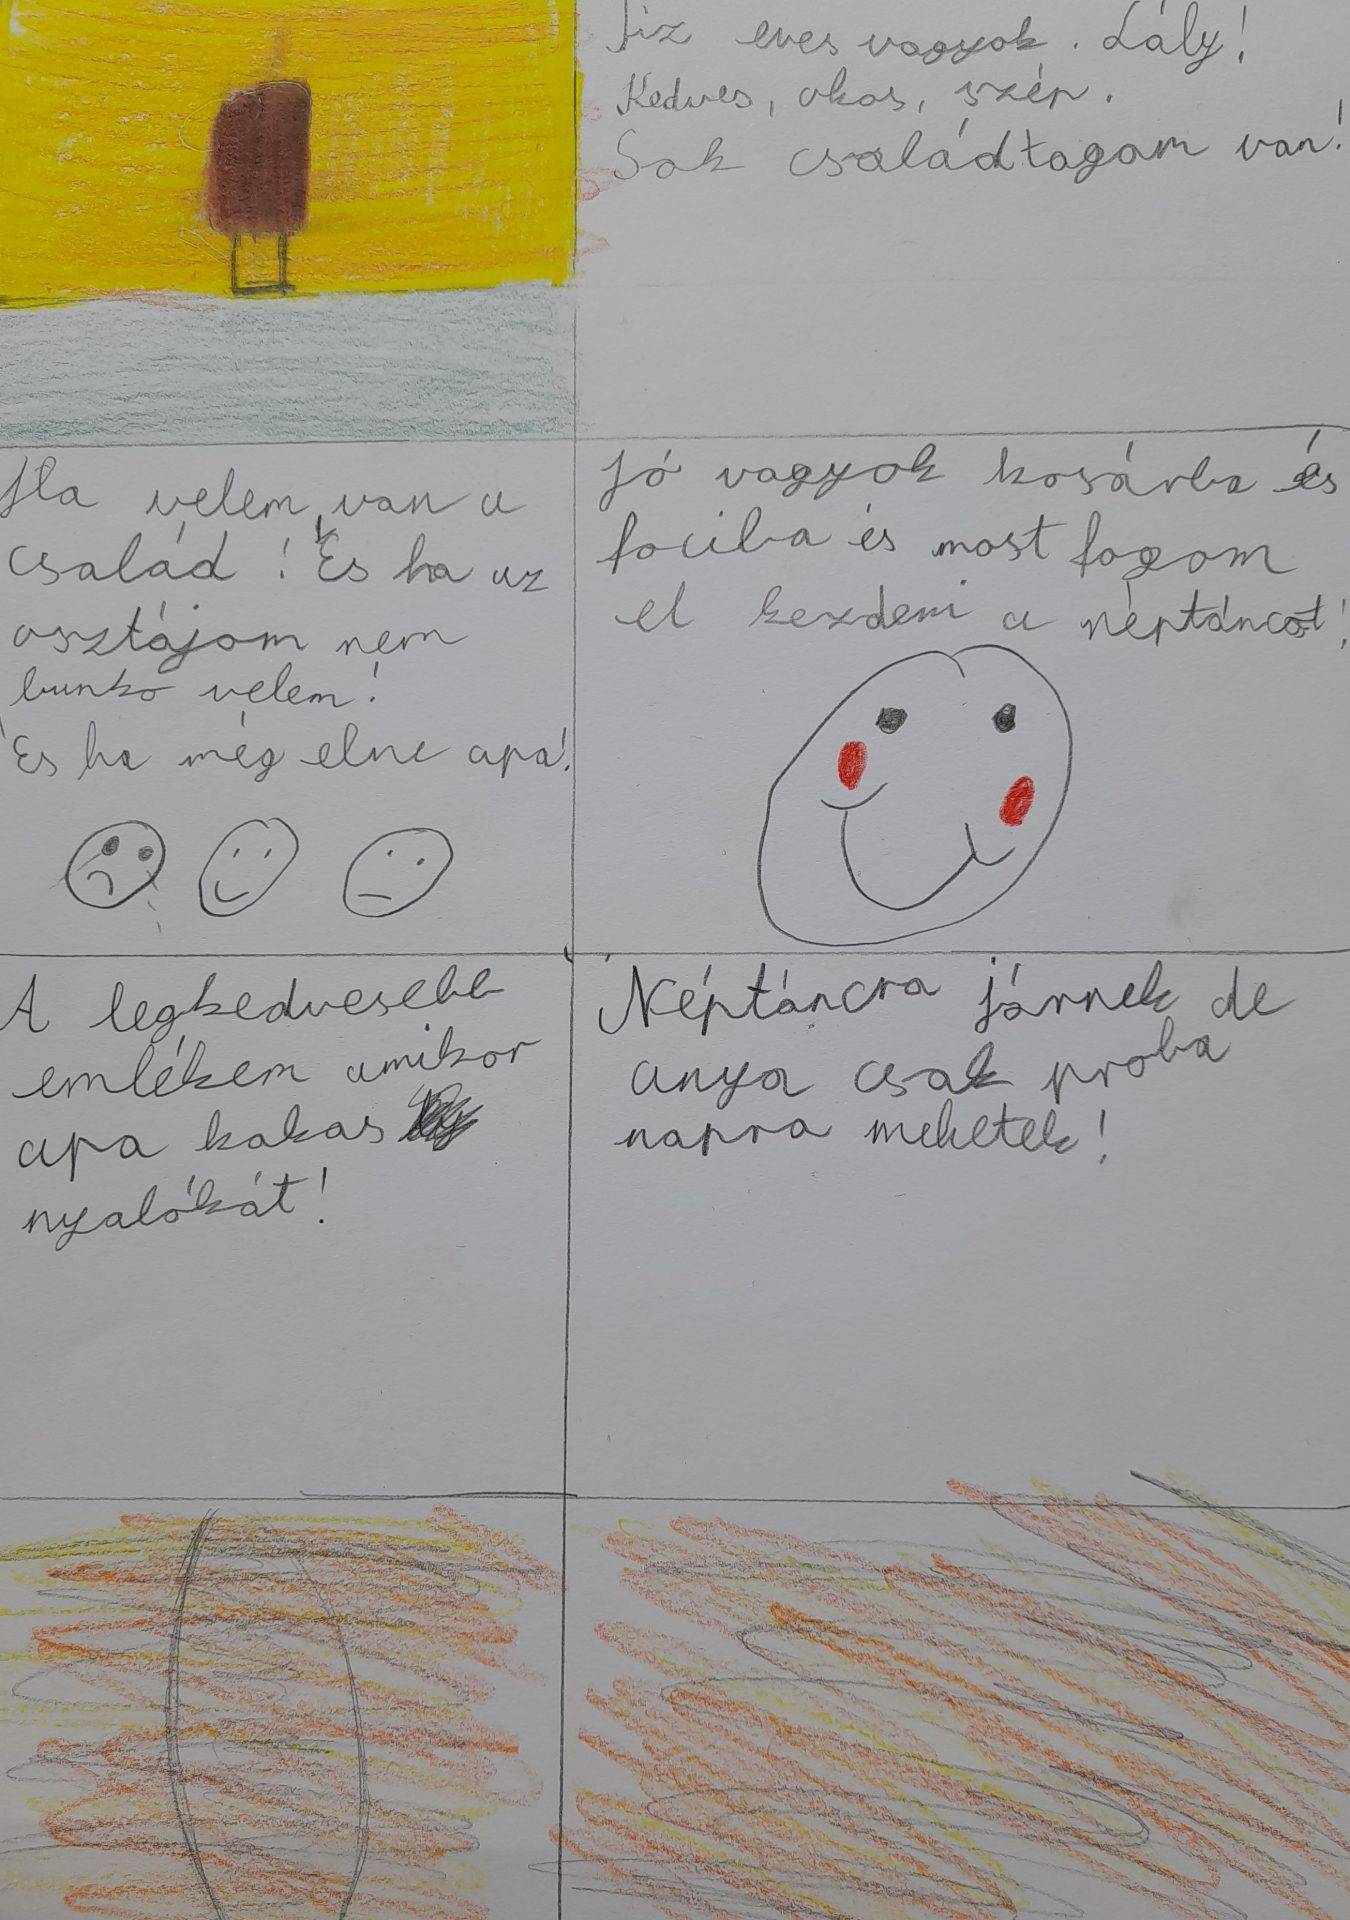 Tiz eves vagyok. Lály!
Kedves, okos, szép.
Sok családtagom van!
Ha velem van a
család! És ha az
osztájom nem
bunkó velem!
És ha még elne apa!
Jó vagyok kosárba és
fociba és most fogom
el kezdeni a néptáncot!
A legkedvesebb
emlékem amikor
apa kakas
nyalókát!
Néptáncra járnék de
anya csak proba
napra mehetek!